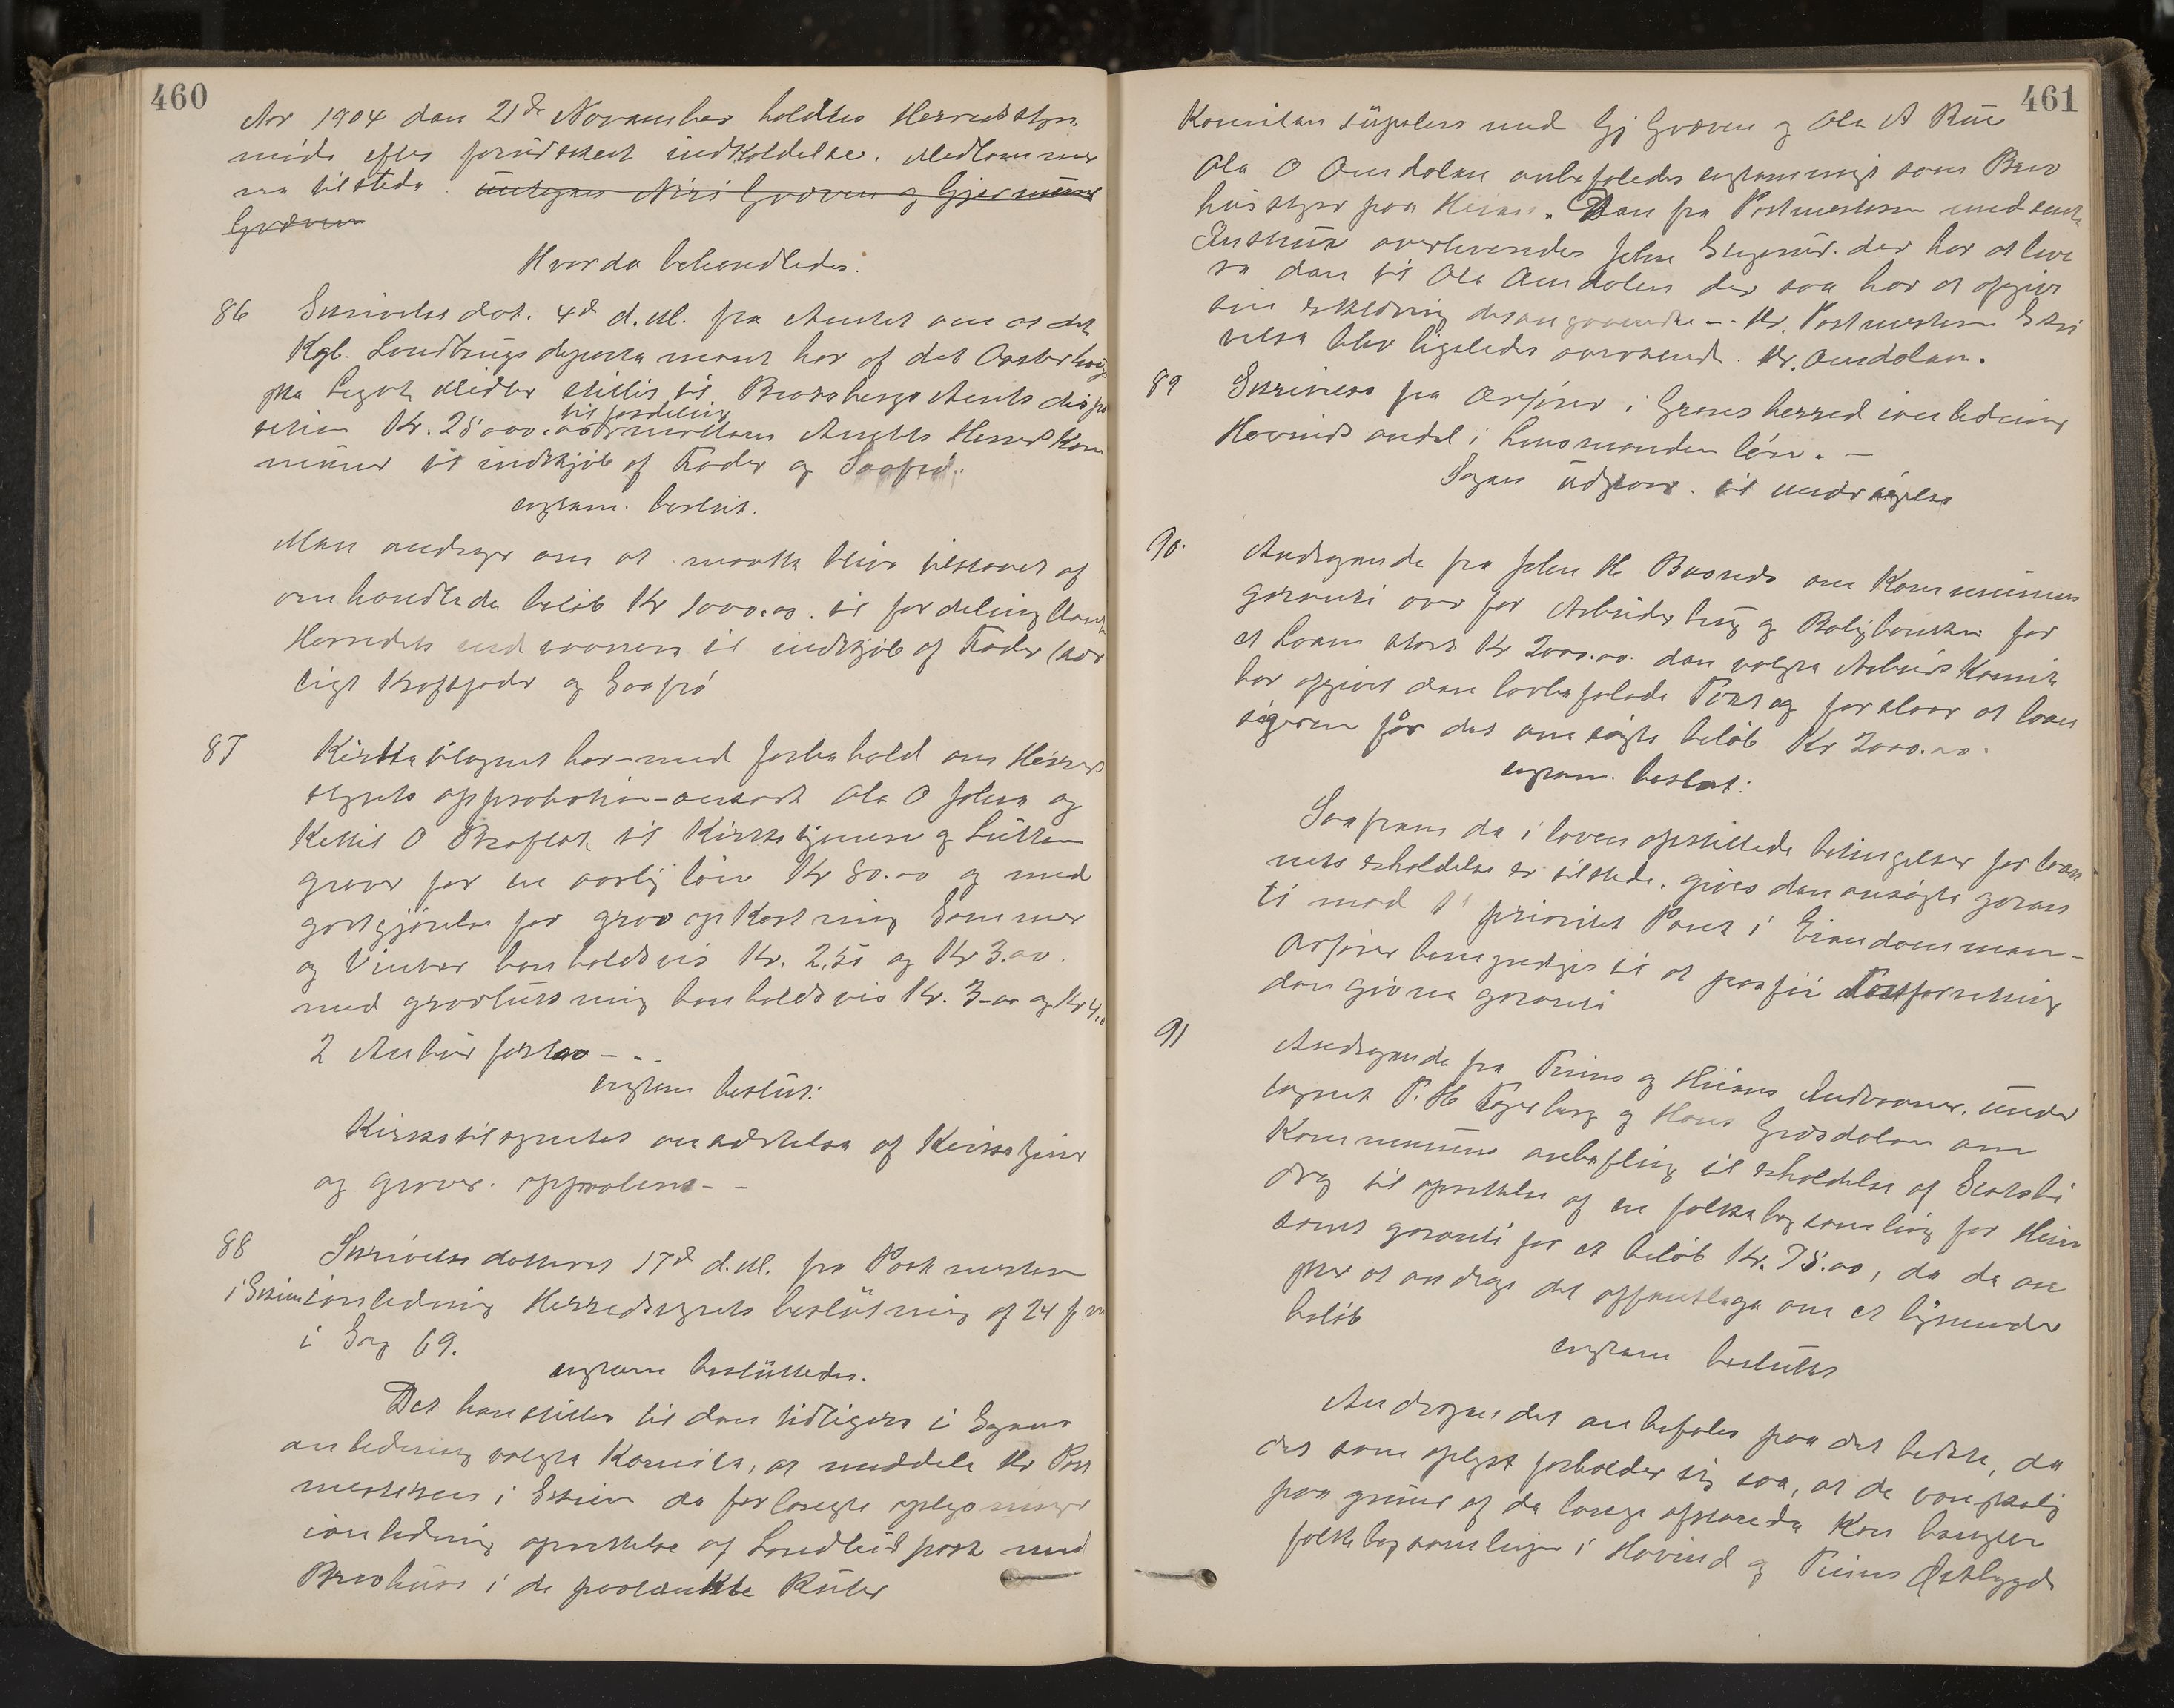 460
Aar 1904 den 21de November holdtes Herredsstyre
møde efter forudskeet indkaldelse. Medlemmer
ne tilstede. undtagen Niri Gvæven og Gjermund
Gvæven
Hvorda behandledes.
86 Skrivelse dat. 4de d.M. fra Amtet om at det
Kgl. Landbrugsdepartement har af det Oasterhoug
ske Legats Midler stillet til Bratsbergs Amts dispo
sition Kr. 25000.00 til fordeling mellem Amtets Herreds Kom
muner til indkjøb af Foder og Saafrø.
enstem. beslut.
Man andrager om at maatte blive tilstaaet af
omhandlede beløb Kr 1000.00. til fordeling blandt
Herredets indvaanere til indkjøb af Foder (sær
ligt Kraftfoder og Saafrø
87 Kirketilsynet har - med forbehold om Herreds
styrets approbation - ansat Ole O Johre og
Kettil O Braflat til Kirketjenere og Lukke
graver for en aarlig løn Kr 80.00 og med
godtgjørelse for gravopkastning Sommer
og Vinter henholdsvis Kr. 2,50 og Kr 3.00.
med gravlukkning henholdsvis Kr. 3.00 og Kr 4,0
2 Anbud forelaa - . -
enstem beslut:
Kirketilsynets ansættelse af Kirketjener
og graver. approberes - -
88 Skrivelse dateret 17de d.M. fra Postmesteren
i Skien i anledning Herredsstyrets beslutning af 24 f.m
i Sag 69.
enstem besluttedes.
Det henstilles til den tidligere i Sagens
anledning valgte Komite, at meddele Hr Post
mesteren i Skien de forlangte oplysninger
i anledning oprettelse af Landbudpost med
Brevhuse i de paatænkte Ruter
461
Komiteen suppleres med Gj Gvæven og Ole A Rue
Ole O Amdalen anbefaledes enstemmigt som Brev
husstyrer paa Hiasen. Den fra Postmesteren medsendte
Instrux overleveredes John Engerud. der har at leve
re den til Ole Aamdalen der saa har at opgive
sin erklæring desangaaende - Hr. Postmesteren Skri
velse blev ligeledes oversendt Hr. Amdalen.
89 Skrivelse fra Ordfører i Grans herred ianledning
Hovinds andel i Lensmanden løn. -
Sagen udstaar. til undersøgelse
90. Andragende fra John H Busnes om Kommunens
garanti over for Arbeiderbrug og Boligbanken for
et Laan stort Kr 2000.00. den valgte Arbeids Komite
har opgivet den lovbefalede Taxt og foreslaar at laan
søgeren får det ansøgte beløb Kr 2000.00.
enstem. beslut:
Saafremt de i loven opstillede betingelser for laan
nets erholdelse er tilstede, gives den ansøgte garan
ti mod 1ste prioritet Pant i Eiendommen -
Ordfører bemyndiges til at paaføre Taxtforretning
den givne garanti
91 Andragende fra Tinns og Hiåens Indvaaner. under
tegnet T. H. Tagerberg og Hans Græsdalen om
Kommunens anbefaling til erholdelse af Statsbi
drag til oprettelse af en folkebogsamling for Hiåen
samt garanti for et beløb Kr. 75.00, da de øn
sker at andrage det offentlige om et lignende
beløb
enstem besluttes
Andragendet anbefales paa det bedste, da
det som oplyst forholder sig saa, at de vanskelig
paa grund af de lange afstande Kan benytte
folkebogsamlingen i Hovind og Tinns Østbygd